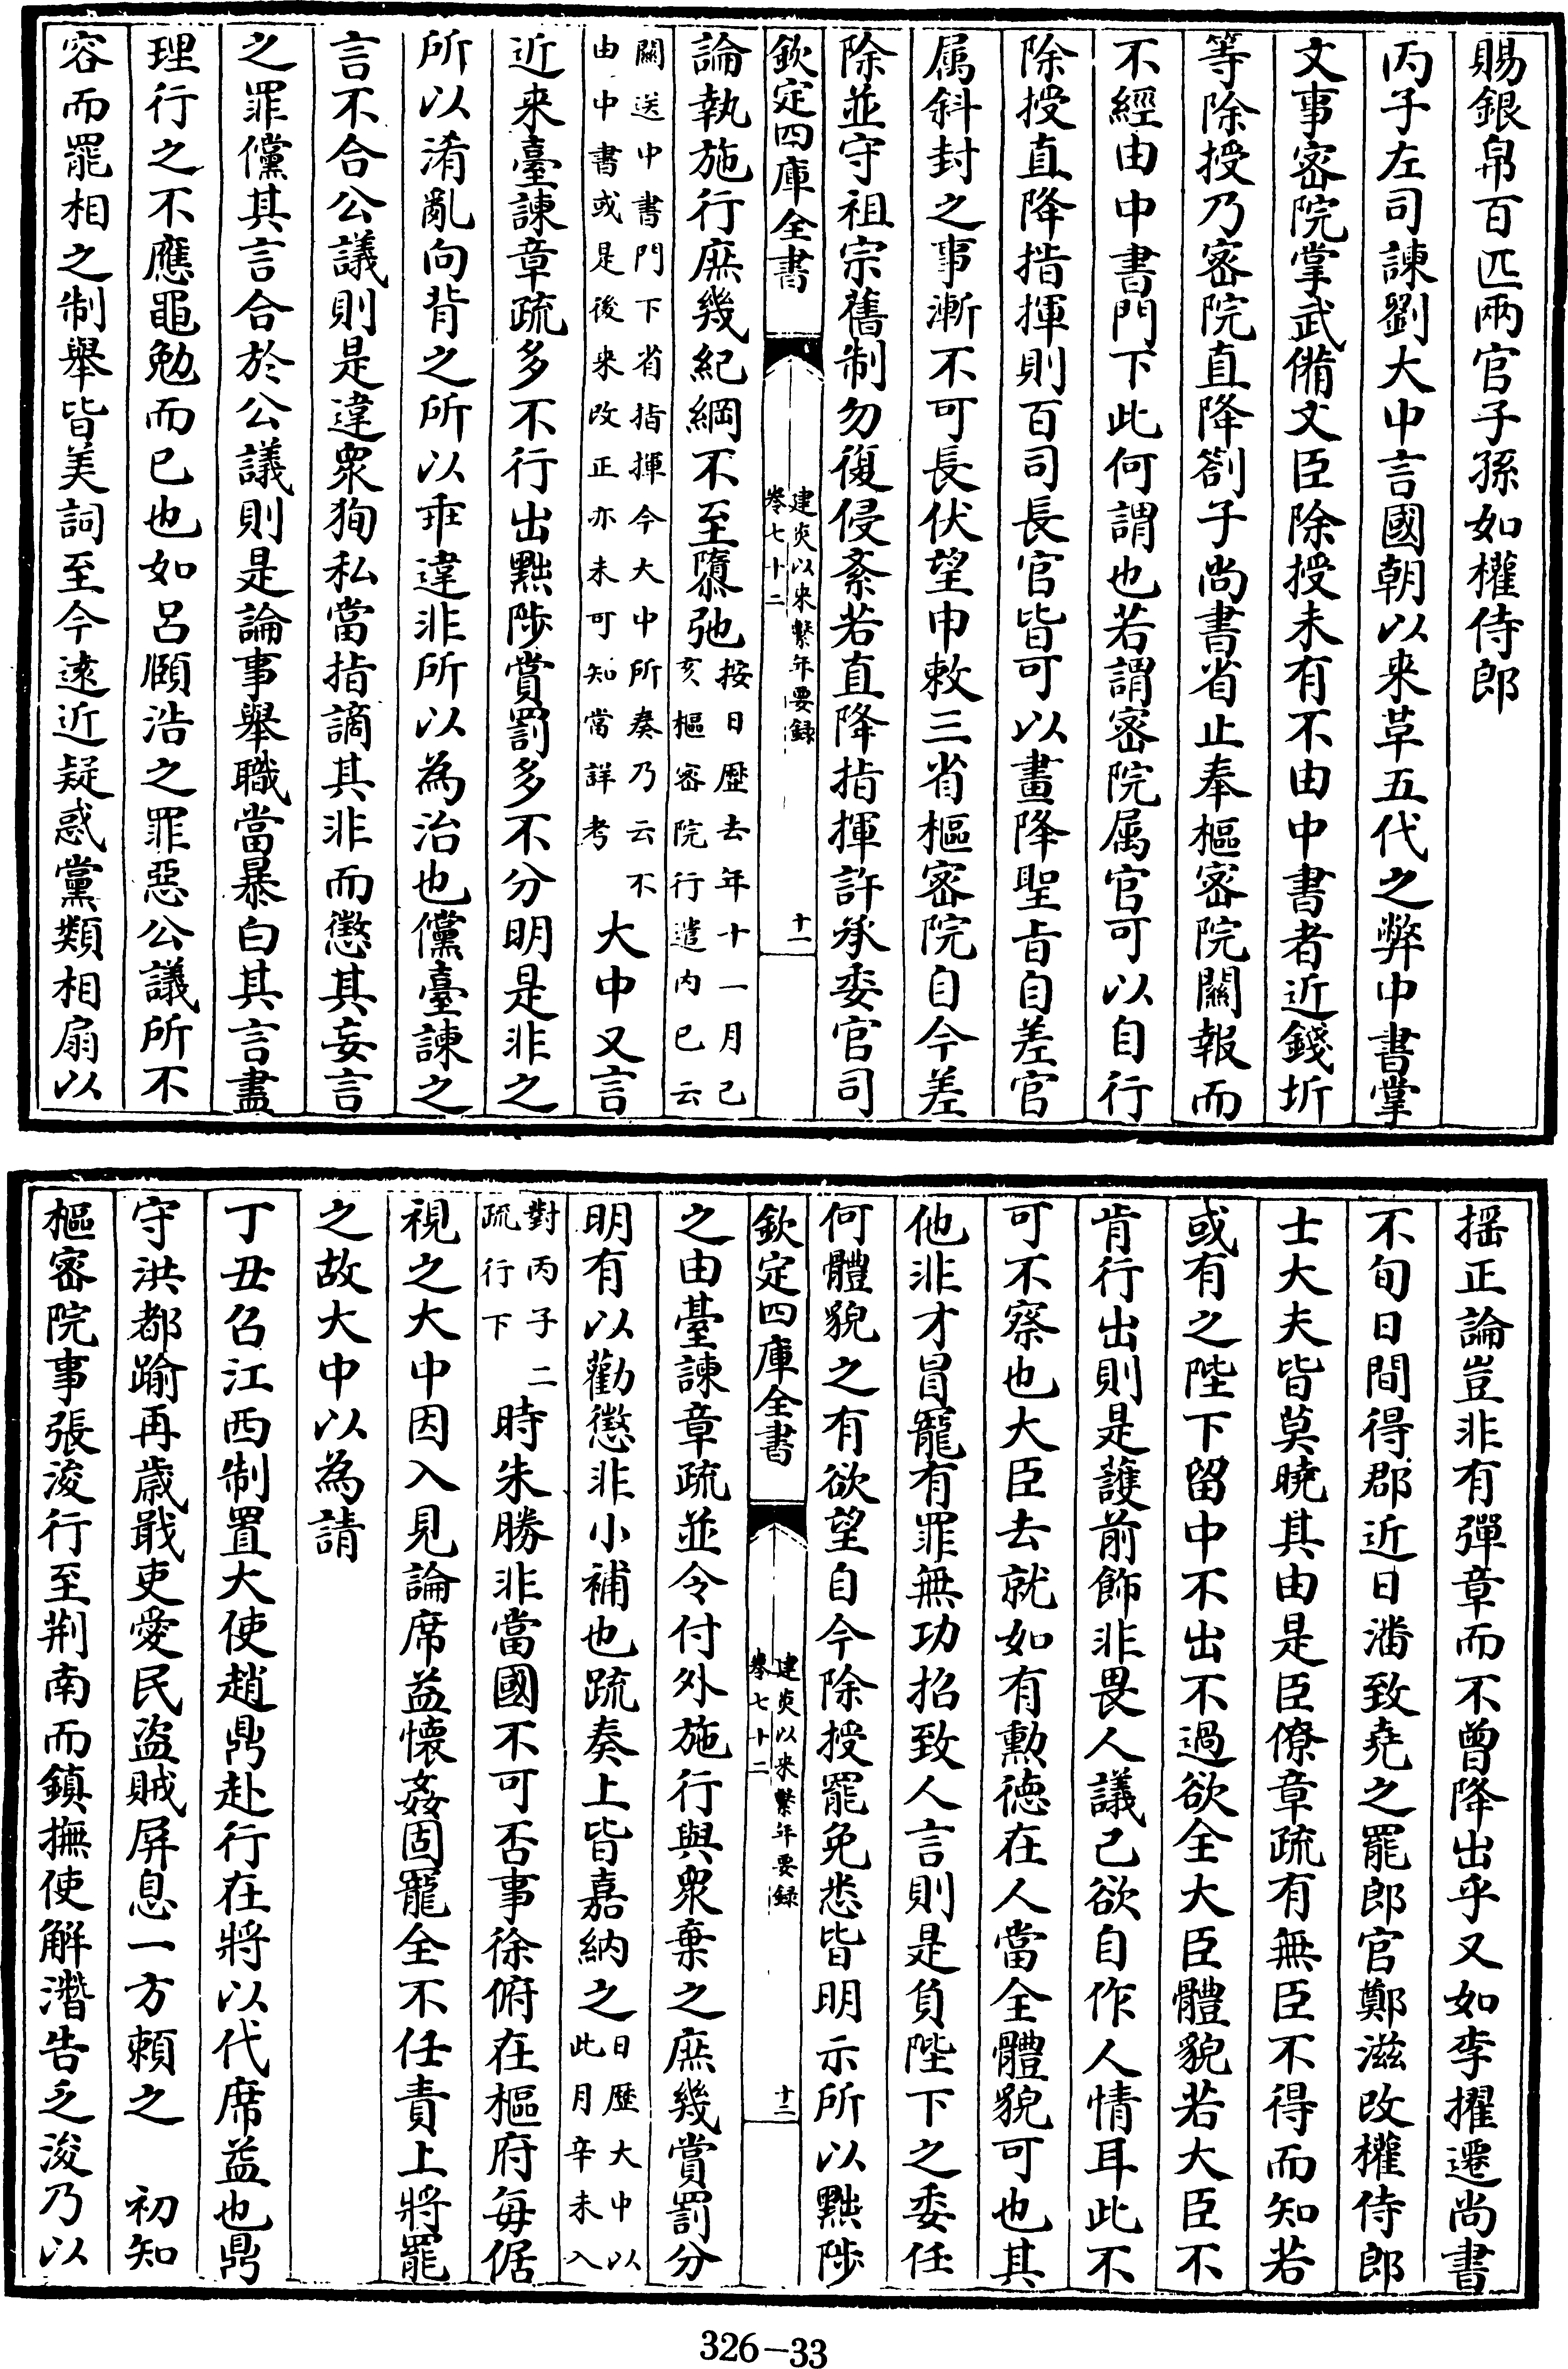 賜銀帛百匹兩官子孫如權侍郎
丙子左司諫劉大中言國朝以来革五代之弊中書掌
文事密院掌武備文臣除授未有不由中書者近錢圻
等除授乃密院直降劄子尚書省止奉樞密院關報而
不經由中書門下此何謂也若謂密院属官可以自行
除授直降指揮則百司長官皆可以畫降聖旨自差官
属斜封之事漸不可長伏望申敕三省樞密院自今差
除並守祖宗舊制勿復侵紊若直降指揮許承委官司
欽定四庫全書
建炎以来繫年要録
卷七十二
十一
論執施行庶幾紀綱不至隳弛按日歴去年十一月己
亥樞密院行遣内已云
關送中書門下省指揮今大中所奏乃云不
由中書或是後来改正亦未可知當詳考大中又言
近来臺諫章疏多不行出黜陟賞罰多不分明是非之
所以淆亂向背之所以乖違非所以為治也儻臺諫之
言不合公議則是違衆狥私當指謫其非而懲其妄言
之罪儻其言合於公議則是論事舉職當暴白其言盡
理行之不應黽勉而已也如呂頤浩之罪惡公議所不
容而罷相之制舉皆美詞至今遠近疑惑黨類相扇以
揺正論豈非有彈章而不曽降出乎又如李擢遷尚書
不旬日間得郡近日潘致堯之罷郎官鄭滋改權侍郎
士大夫皆莫曉其由是臣僚章疏有無臣不得而知若
或有之陛下留中不出不過欲全大臣體貌若大臣不
肯行出則是護前飾非畏人議己欲自作人情耳此不
可不察也大臣去就如有勲徳在人當全體貌可也其
他非才冒寵有罪無功招致人言則是負陛下之委任
何體貌之有欲望自今除授罷免悉皆明示所以黜陟
欽定四庫全書
建炎以来繫年要録
卷七十二
十二
之由臺諫章疏並令付外施行與衆棄之庶幾賞罰分
明有以勸懲非小補也疏奏上皆嘉納之日歴大中以
此月辛未入
對丙子二
疏行下時朱勝非當國不可否事徐俯在樞府每倨
視之大中因入見論席益懷姦固寵全不任責上將罷
之故大中以為請
丁丑召江西制置大使趙鼎赴行在將以代席益也鼎
守洪都踰再歳戢吏愛民盜賊屏息一方頼之　初知
樞密院事張浚行至荆南而鎮撫使解潛告乏浚乃以
326－33